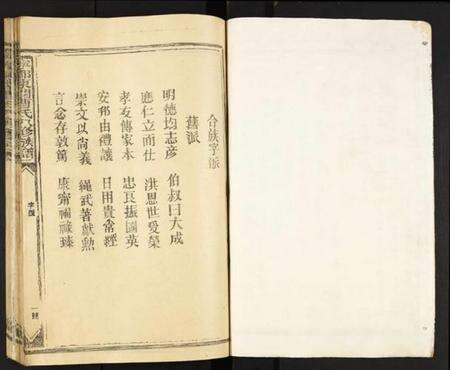 合族字派
舊派
明德均志彥 伯叔曰大成
應仁立而仕 洪恩世愛榮
孝友傳家本 忠良振國英
安邦由禮讓 日用貴常經
崇文以尚義 繩武著猷勲
言念存敦篤 康齋繡
字派